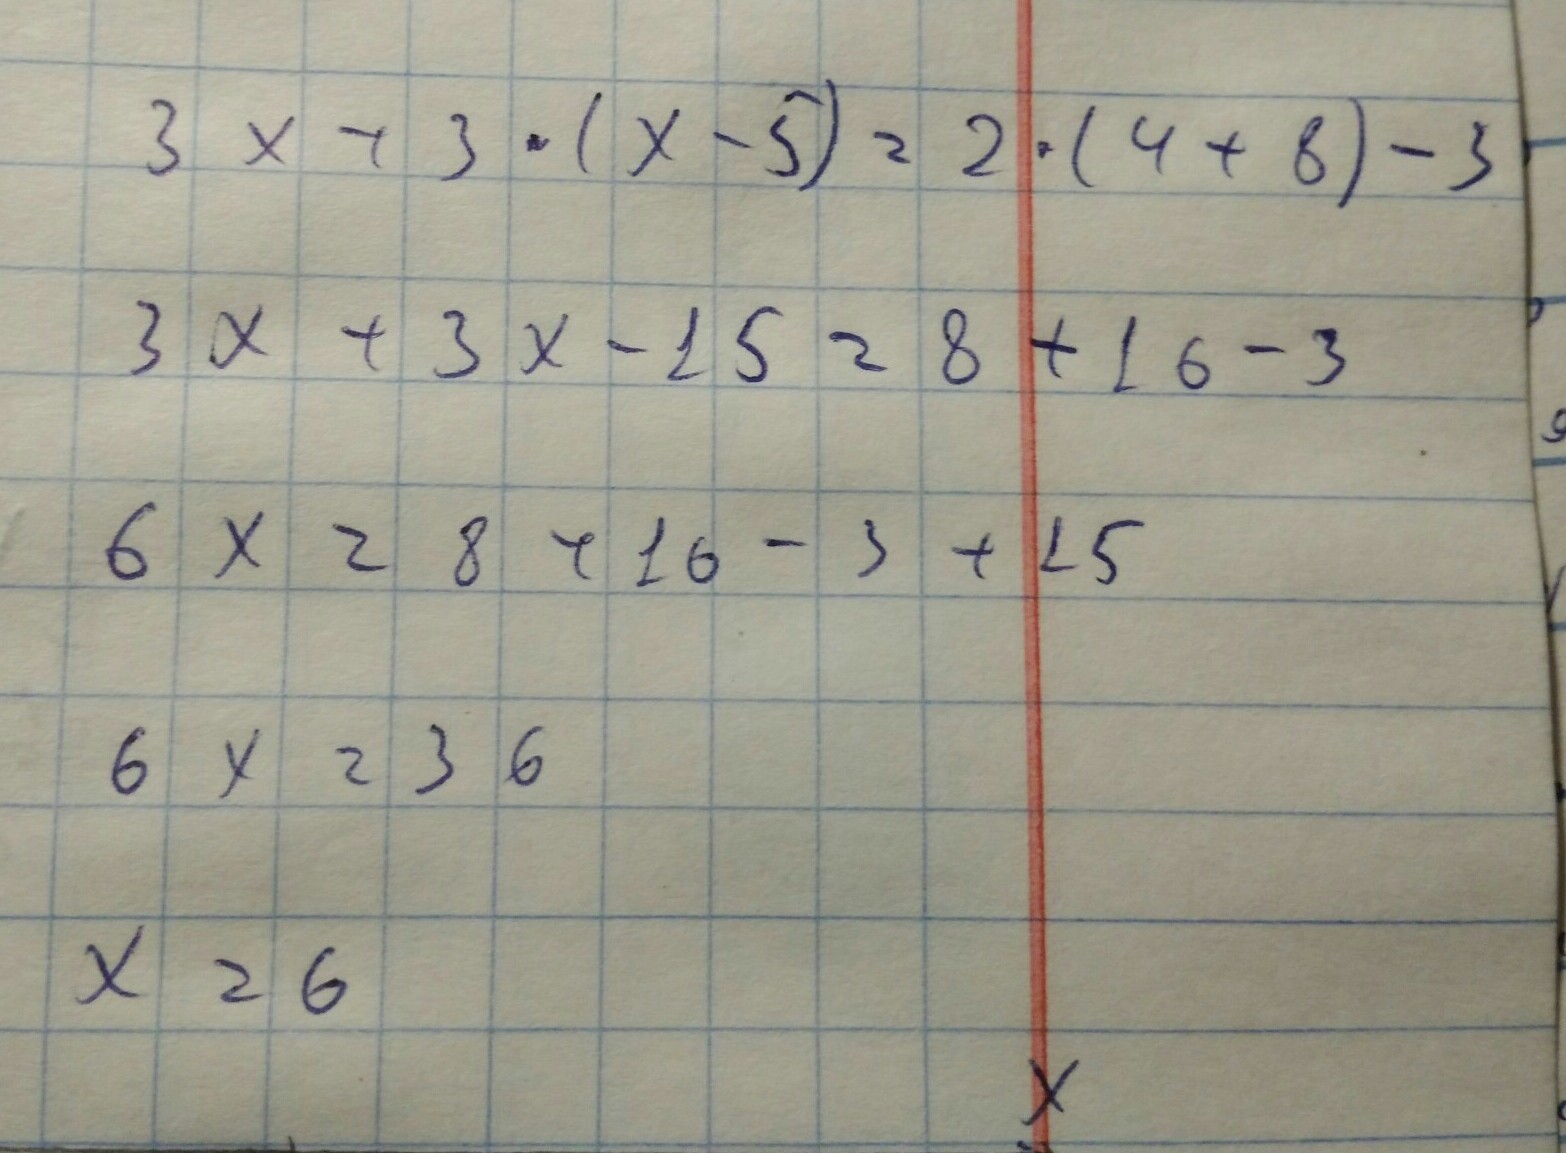 3x+3·(x-5)=2·(4+8)-3
3x+3x-15=8+16-3
6x=8+16-3+15
6x=36
x=6
x